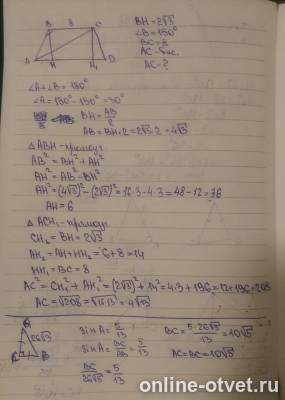 B 8 C
A H H₁ D
BH = 2√3
∠B = 150°
BC = 8
AC - бис.
AC - ?
∠A + ∠B = 180°
∠A = 180° - 150° = 30°
BH = AB/2
AB = BH · 2 = 2√3 · 2 = 4√3
△ ABH - прямоуг.
AB² = BH² + AH²
AH² = AB² - BH²
AH² = (4√3)² - (2√3)² = 16·3 - 4·3 = 48 - 12 = 36
AH = 6
△ ACH₁ - прямоуг.
CH₁ = BH = 2√3
AH₁ = AH + HH₁ = 6 + 8 = 14
HH₁ = BC = 8
AC² = CH₁² + AH₁² = (2√3)² + 14² = 4·3 + 196 = 12 + 196 = 208
AC = √208 = √16·13 = 4√13
A
26√3
C B
sin A = 5/13
sin A = BC/AB = 5/13
BC/26√3 = 5/13
BC = 5·26√3/13 = 10√3
AC = BC = 10√3
online-otvet.ru